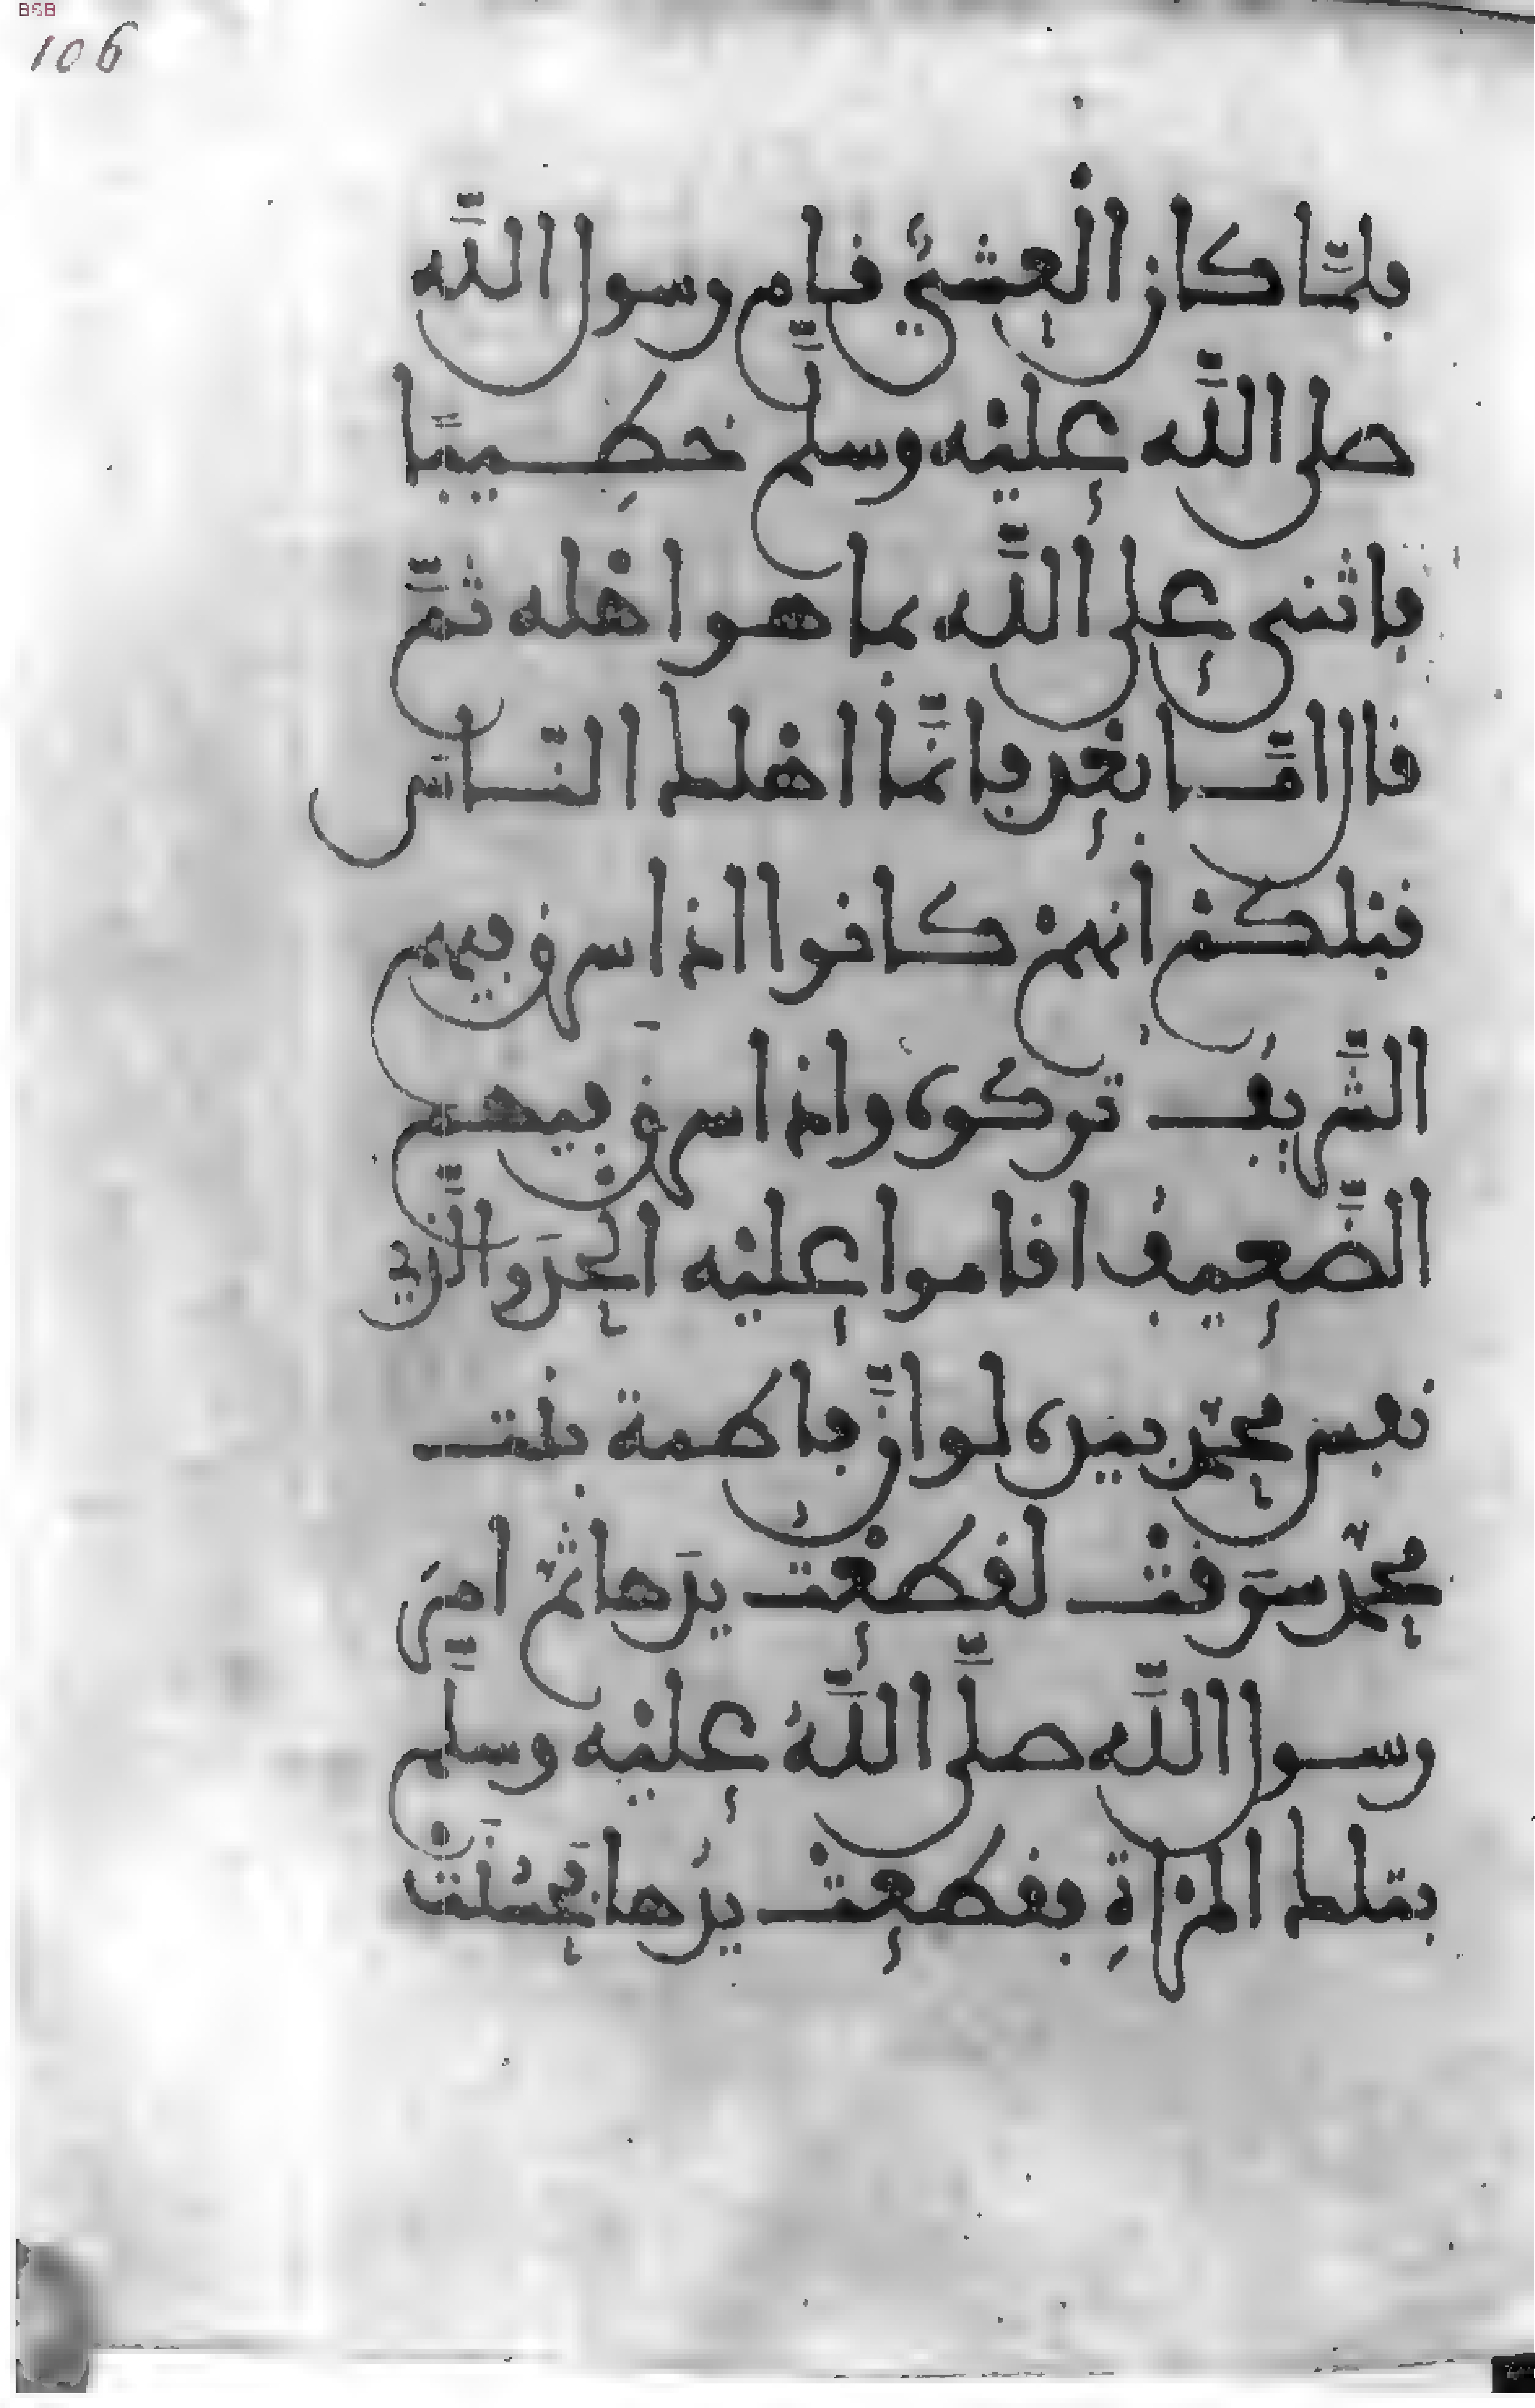 BSB
106
فلمّا كان الْعشيُّ قام رسول اللّه
صلى اللّه عليْه وسلّم خطِيبًا
فاثنى على اللّه بما هو اهْله ثمّ
قال امّا بعْد فانّما اهْلك النّاس
قبْلكمْ انهمْ كانوا اذا سرق فيهم
الشّريفُ تركوه واذا سرق فيهم
الضّعيفُ اقاموا عليْه الْحدَّ والّذي
نفس محمّد بيده لو انّ فاطمة بنْت
محمّد سرَقتْ لقطعْتُ يدَها ثمّ امرَ
رسول اللّه صلّى اللّهُ عليْه وسلّم
بتلك المرْاةِ فقطعتْ يدُها فحسُنَتْ